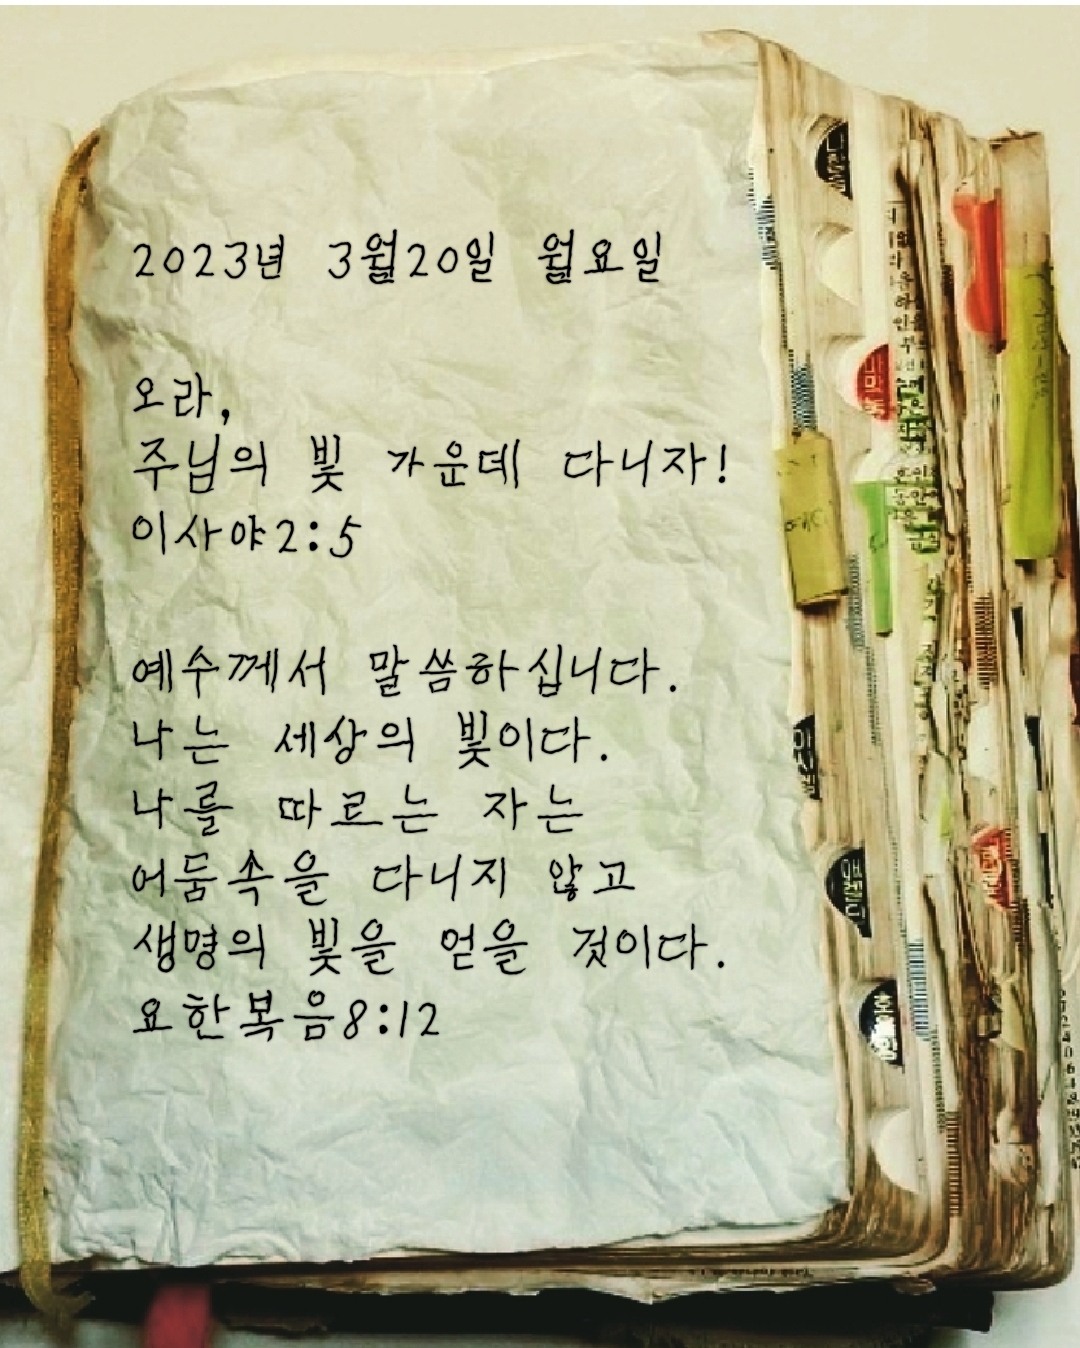 2023년 3월20일 월요일
오라,
주님의 빛 가운데 다니자!
이사야2:5
예수께서 말씀하십니다.
나는 세상의 빛이다.
나를 따르는 자는
어둠속을 다니지 않고
생명의 빛을 얻을 것이다.
요한복음8:12